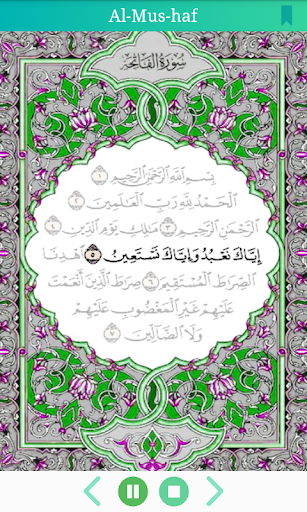 Al-Mus-haf
سُورَةُ الْفَاتِحَةِ
بِسْمِ اللَّهِ الرَّحْمَٰنِ الرَّحِيمِ ١
الْحَمْدُ لِلَّهِ رَبِّ الْعَالَمِينَ ٢
الرَّحْمَٰنِ الرَّحِيمِ ٣ مَالِكِ يَوْمِ الدِّينِ ٤
إِيَّاكَ نَعْبُدُ وَإِيَّاكَ نَسْتَعِينُ ٥ اهْدِنَا
الصِّرَاطَ الْمُسْتَقِيمَ ٦ صِرَاطَ الَّذِينَ أَنْعَمْتَ
عَلَيْهِمْ غَيْرِ الْمَغْضُوبِ عَلَيْهِمْ
وَلَا الضَّالِّينَ ٧